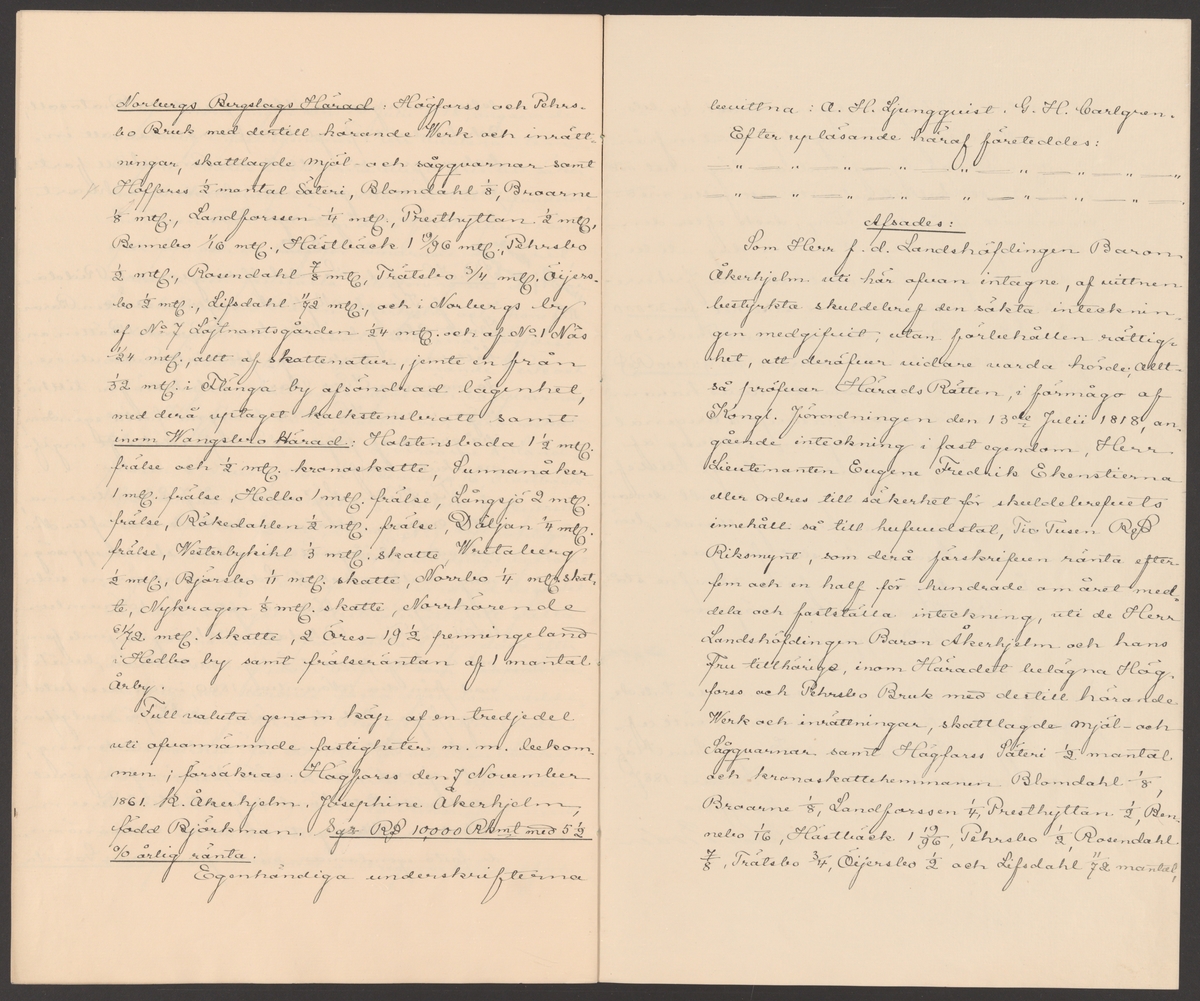 Norbergs Bergslags Härad: Högforss och Pehrs-
bo Bruk med dertill hörande Werk och inrätt-
ningar, skattlagde mjöl- och sågqvarnar samt
Högforss 1/2 mantal Säteri, Blomdahl 1/8, Broarne
1/8 mtl., Landforssen 1/4 mtl., Presthyttan 1/2 mtl,
Bennebo 1/16 mtl., Hästbäck 1 19/96 mtl., Pehrsbo
1/2 mtl., Rosendahl 7/8 mtl, Trätsbo 3/4 mtl. Öijers-
bo 1/2 mtl., Lifsdahl 11/72 mtl., och i Norbergs by
af No 7 Löjtnantsgården 1/24 mtl. och af No 1 Näs
1/24 mtl., allt af skattenatur, jemte en från
1/32 mtl. i Flänga by afsöndrad lägenhet,
med derå uptaget kalkstensbrott samt
inom Wangsbro Härad: Halstensboda 1 1/2 mtl.
frälse och 1/2 mtl. kronoskatte, Sunnanåker
1 mtl. frälse, Hedbo 1 mtl. frälse, Långsjö 2 mtl.
frälse, Råkedahlen 1/2 mtl. frälse, Döljan 1/4 mtl.
frälse, Westerbykihl 1/3 mtl. skatte Wretaberg
1/2 mtl., Bjorsbo 1/4 mtl. skatte, Norrbo 1/4 mtl. skat-
te, Nykrogen 1/8 mtl. skatte, Norrhörende
mtl. skatte, 2 Öres- 19 1/2 penningeland
i Hedbo by samt frälseräntan af 1 mantal
Årby.
Full valuta genom köp af en tredjedel
uti ofvannämnde fastigheter m. m. bekom-
men; försäkras. Högforss den 7 November
1861. K. Åkerhjelm. Josephine Åkerhjelm,
född Björkman. Sgr Rd 10,000 Rmt med 5 1/2
% årlig ränta.
Egenhändiga underskrifterna
bevittna: A. H. Ljungquist. G. H. Carlgren.
Efter upläsande häraf företeddes:
— " — " — " — " — " — " — " — "
" — " — " — " — " — " — " — " — .
Afsades:
Som Herr f. d. Landshöfdingen Baron
Åkerhjelm uti här ofvan intagne, af vittnen
bestyrkta skuldebref den sökta intecknin-
gen medgifvit, utan förbehållen rättig-
het, att deröfver vidare varda hörde; Allt-
så pröfvar HäradsRätten, i förmågo af
Kongl. Förordningen den 13de Julii 1818, an-
gående inteckning i fast egendom, Herr
Lieutenanten Eugene Fredrik Ekenstierna
eller ordres till säkerhet för skuldebrefvets
innehåll så till hufvudstol, Tio Tusen Rd
Riksmynt, som derå förskrifven ränta efter
fem och en half för hundrade om året med-
dela och fastställa inteckning, uti de Herr
Landshöfdingen Baron Åkerhjelm och hans
Fru tillhörige, inom Häradet belägna Hög-
forss och Pehrsbo Bruk med dertill hörande
Werk och inrättningar, skattlagde mjöl- och
Sågqvarnar samt Högforss Säteri 1/2 mantal
och kronoskattehemmanen Blomdahl 1/8,
Broarne 1/8, Landforssen 1/4, Presthyttan 1/2, Ben-
nebo 1/16, Hästbäck 1 19/96, Pehrsbo 1/2, Rosendahl
7/8, Trätsbo 3/4, Öijersbo 1/2 och Lifsdahl 11/72 mantal,